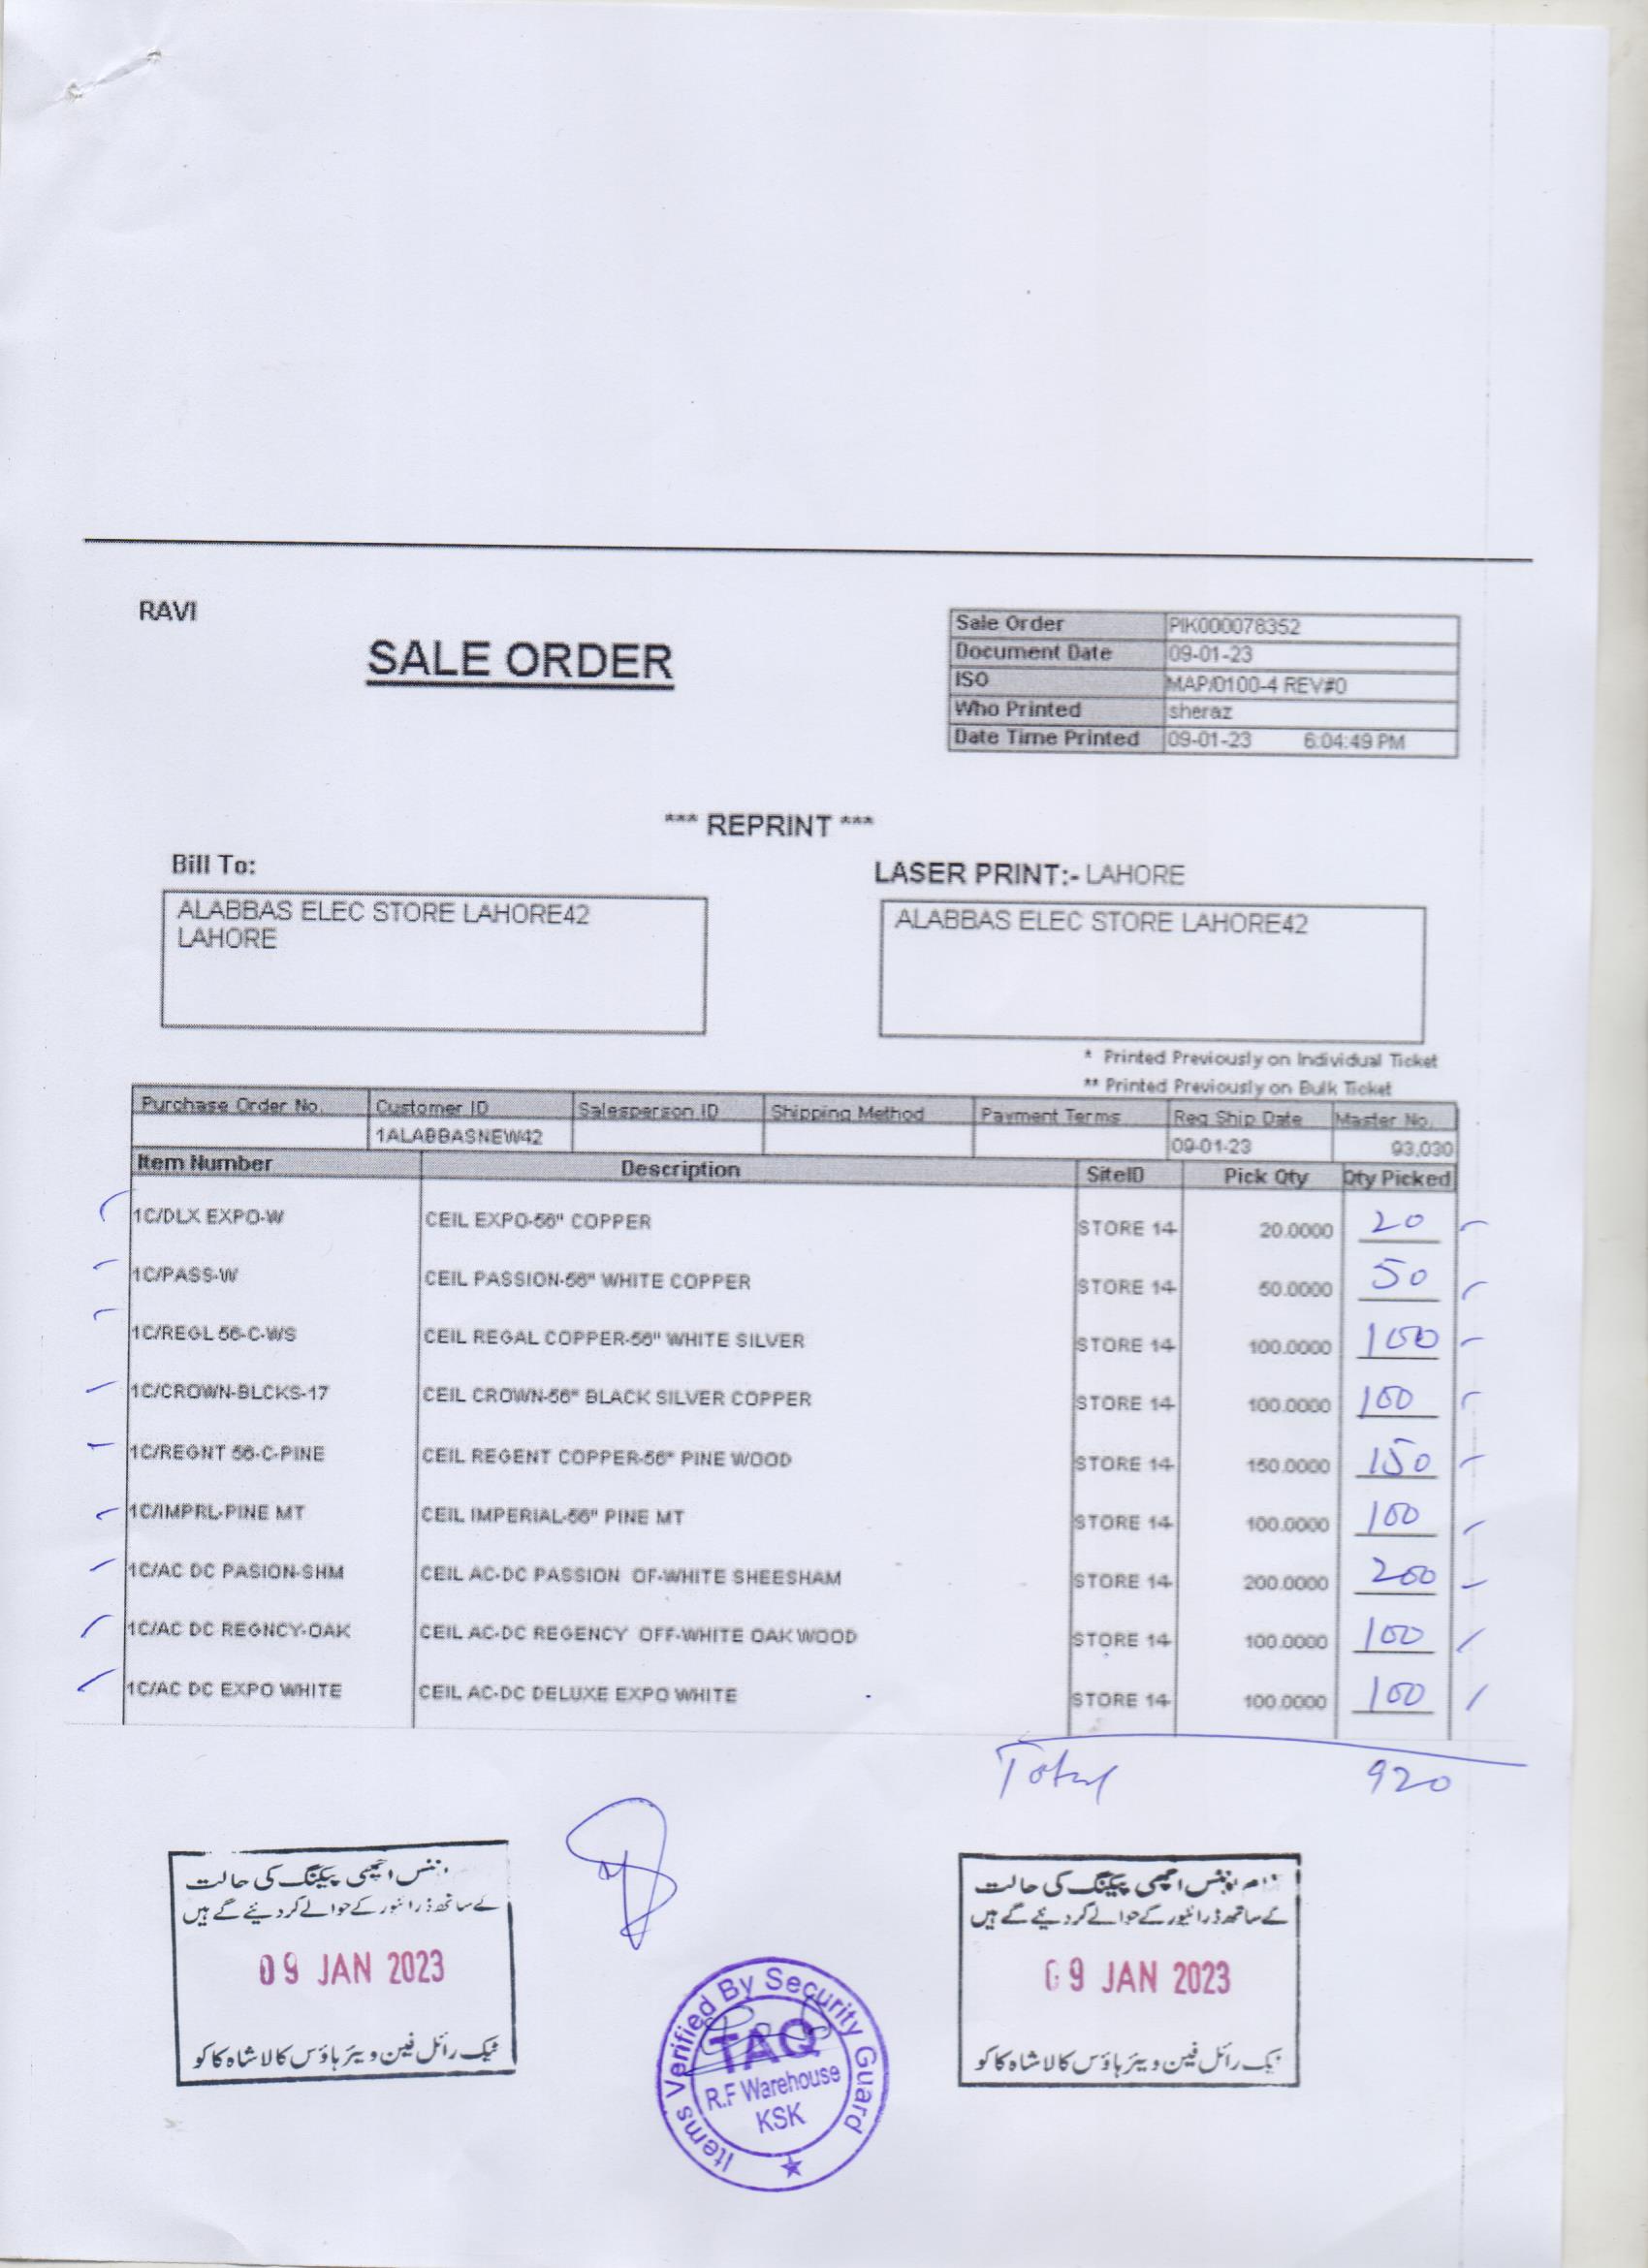 RAVI
SALE ORDER
Sale Order PIK000078352
Document Date 09-01-23
ISO MAP/0100-4 REV#0
Who Printed sheraz
Date Time Printed 09-01-23 6:04:49 PM
*** REPRINT ***
Bill To:
LASER PRINT:- LAHORE
ALABBAS ELEC STORE LAHORE42
LAHORE
ALABBAS ELEC STORE LAHORE42
* Printed Previously on Individual Ticket
** Printed Previously on Bulk Ticket
Purchase Order No. Customer ID Salesperson ID Shipping Method Payment Terms Req Ship Date Master No.
1ALABBASNEW42 09-01-23 93,030
Item Number Description SiteID Pick Qty Qty Picked
1C/DLX EXPO-W CEIL EXPO-56" COPPER STORE 14 20.0000 20
1C/PASS-W CEIL PASSION-56" WHITE COPPER STORE 14 50.0000 50
1C/REGL 56-C-WS CEIL REGAL COPPER-56" WHITE SILVER STORE 14 100.0000 100
1C/CROWN-BLCKS-17 CEIL CROWN-56" BLACK SILVER COPPER STORE 14 100.0000 100
1C/REGNT 56-C-PINE CEIL REGENT COPPER-56" PINE WOOD STORE 14 150.0000 150
1C/IMPRL-PINE MT CEIL IMPERIAL-56" PINE MT STORE 14 100.0000 100
1C/AC DC PASION-SHM CEIL AC-DC PASSION OF-WHITE SHEESHAM STORE 14 200.0000 200
1C/AC DC REGNCY-OAK CEIL AC-DC REGENCY OFF-WHITE OAK WOOD STORE 14 100.0000 100
1C/AC DC EXPO WHITE CEIL AC-DC DELUXE EXPO WHITE STORE 14 100.0000 100
Total 920
اچھی پیکنگ کی حالت
کے ساتھ ڈرائیور کے حوالے کر دیئے گے ہیں
09 JAN 2023
ٹیک رائل فین ویئر ہاؤس کالا شاہ کاکو
Items Verified By Security Guard
TAQ
R.F Warehouse
KSK
اچھی پیکنگ کی حالت
کے ساتھ ڈرائیور کے حوالے کر دیئے گے ہیں
09 JAN 2023
رائل فین ویئر ہاؤس کالا شاہ کاکو